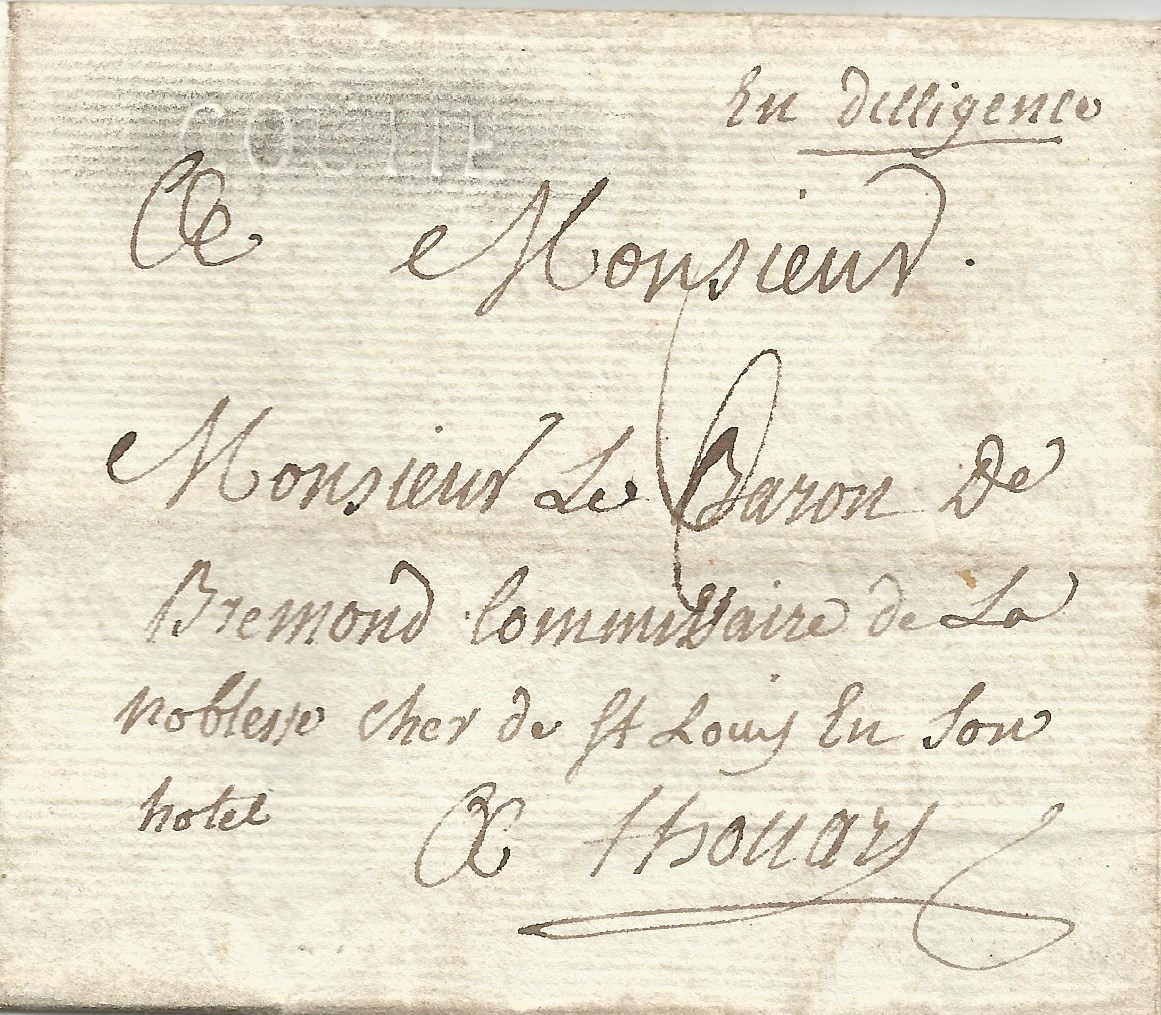 En delligence
A Monsieur.
Monsieur Le Baron De
Bremond Commissaire de La
noblesse cher de st Louis En Son
hotel
A thouars